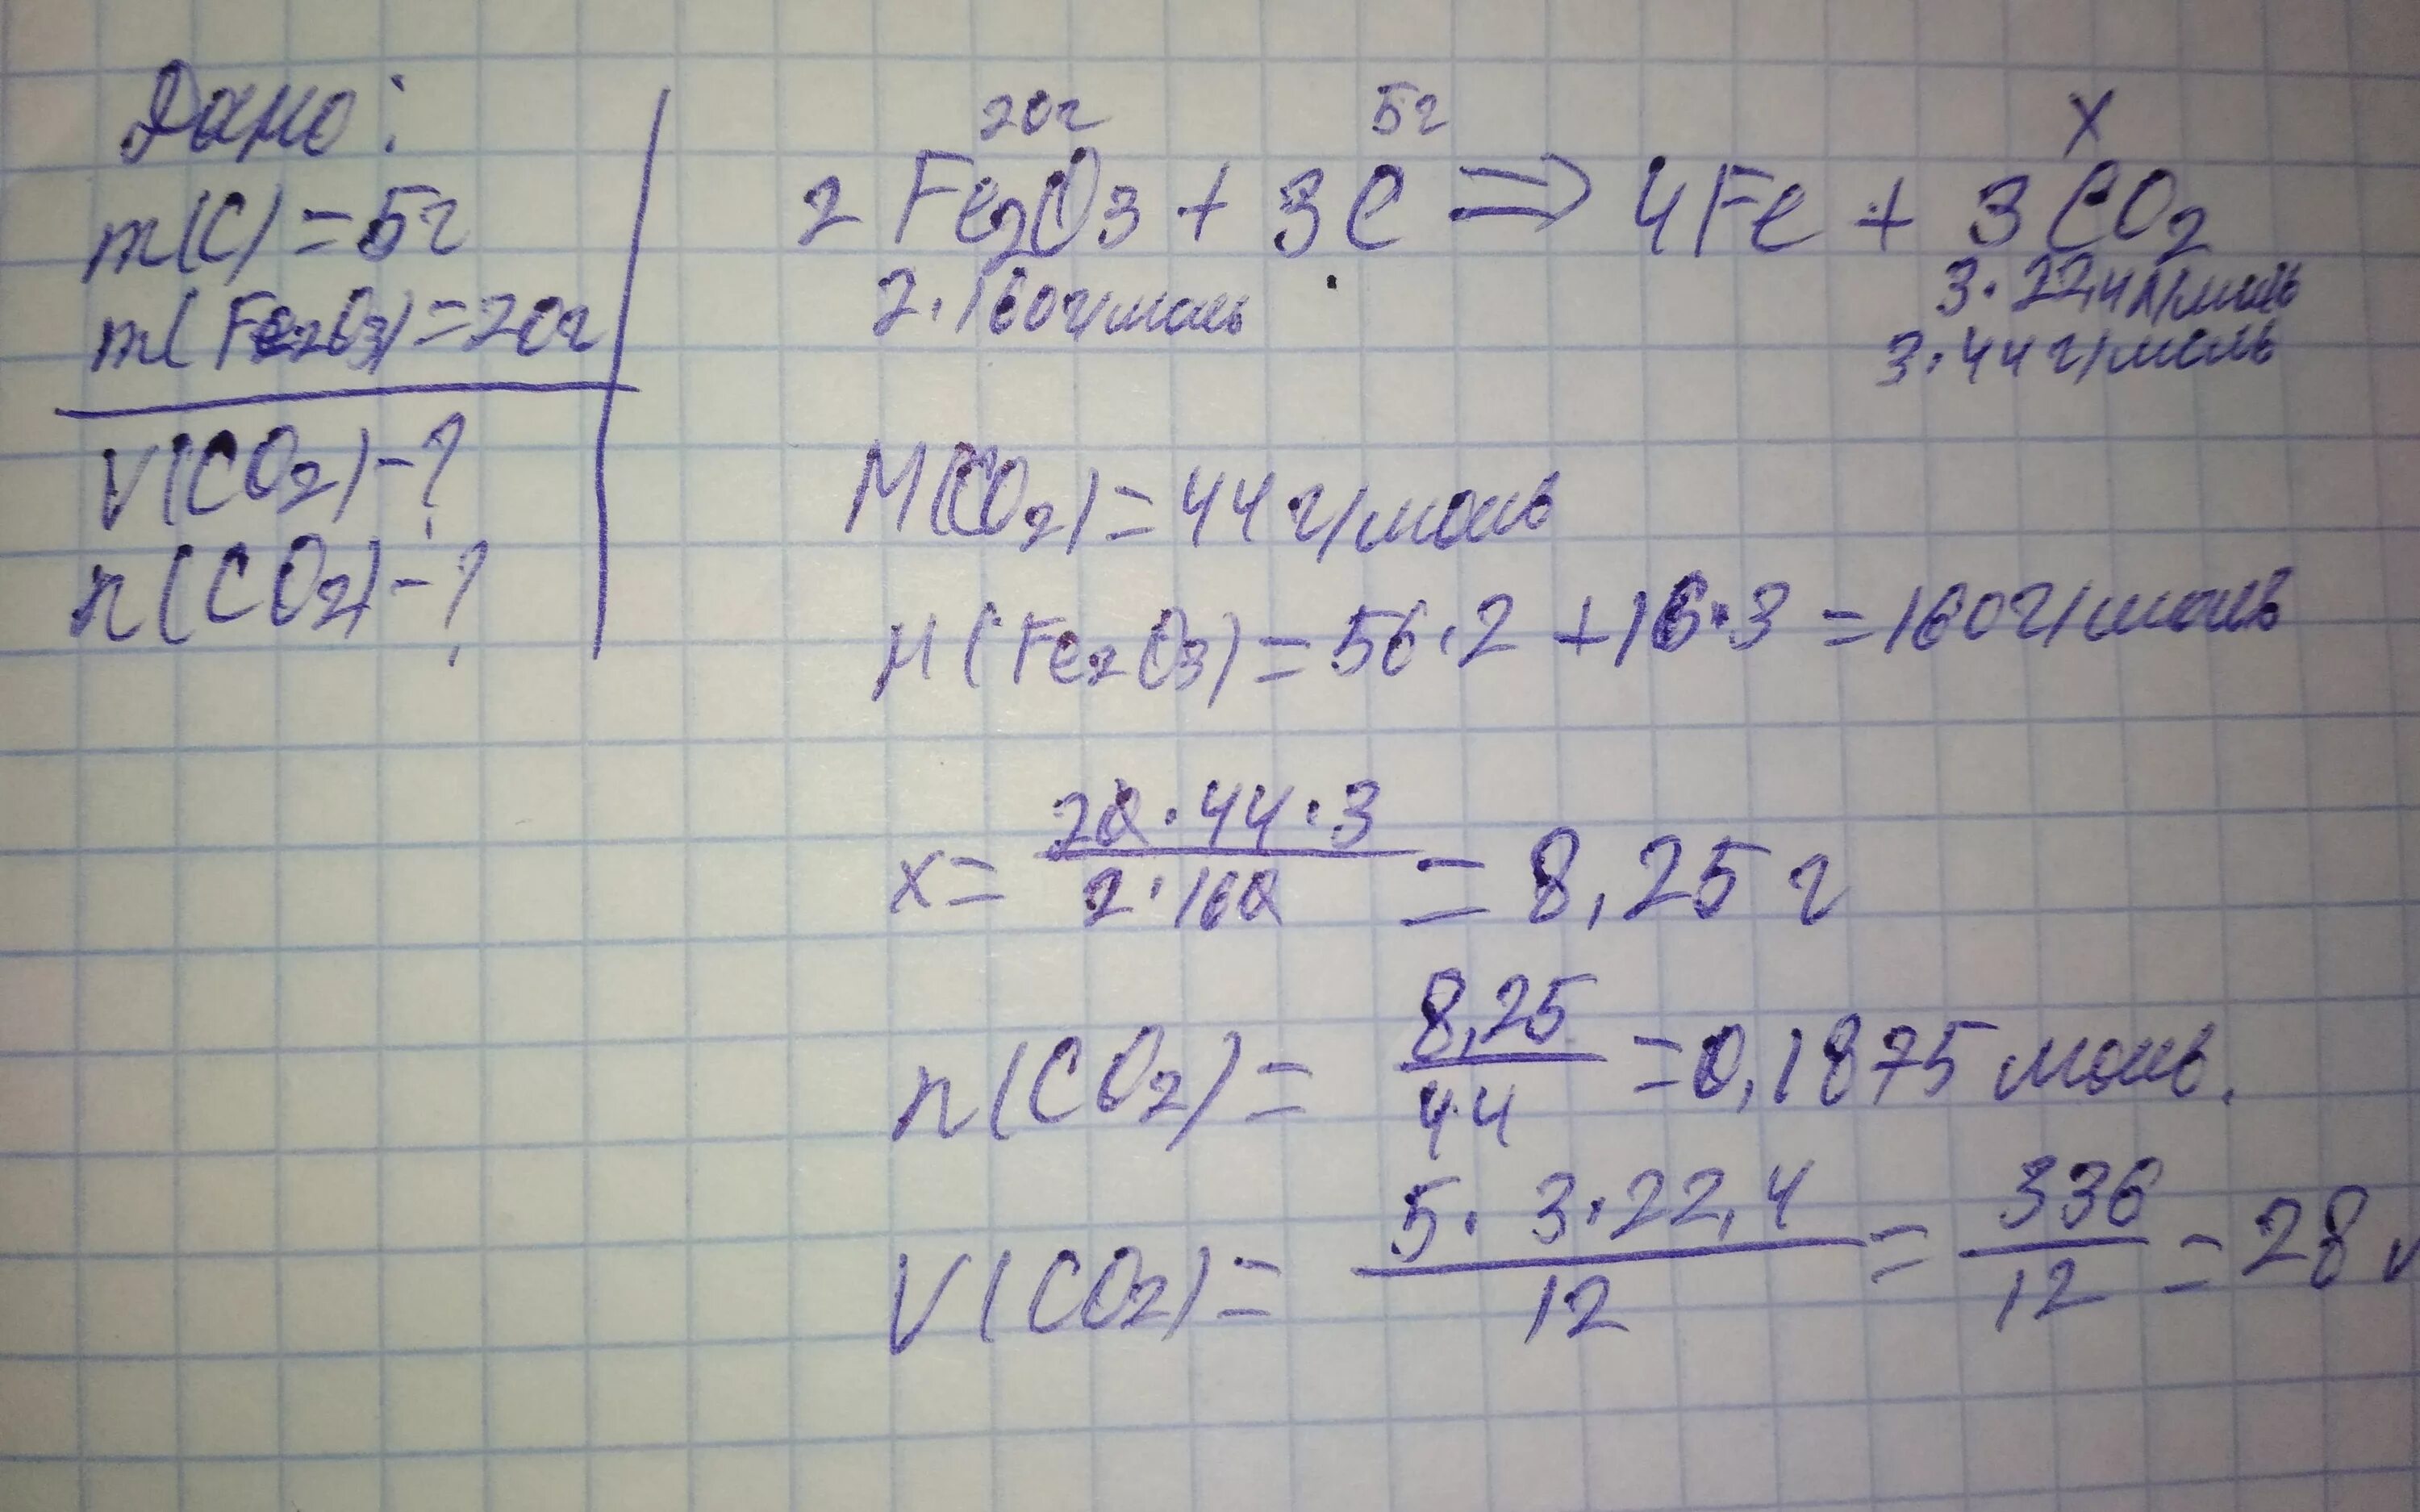 Дано:
m(C)=5г
m(Fe₂O₃)=20г
V(CO₂)-?
n(CO₂)-?
20г 5г x
2Fe₂O₃+3C⇒4Fe+3CO₂
2·160г/моль 3·22,4л/моль
3·44г/моль
M(CO₂)=44г/моль
M(Fe₂O₃)=56·2+16·3=160г/моль
x=20·44·3/2·160=8,25г
n(CO₂)=8,25/44=0,1875моль.
V(CO₂)=5·3·22,4/12=336/12=28л